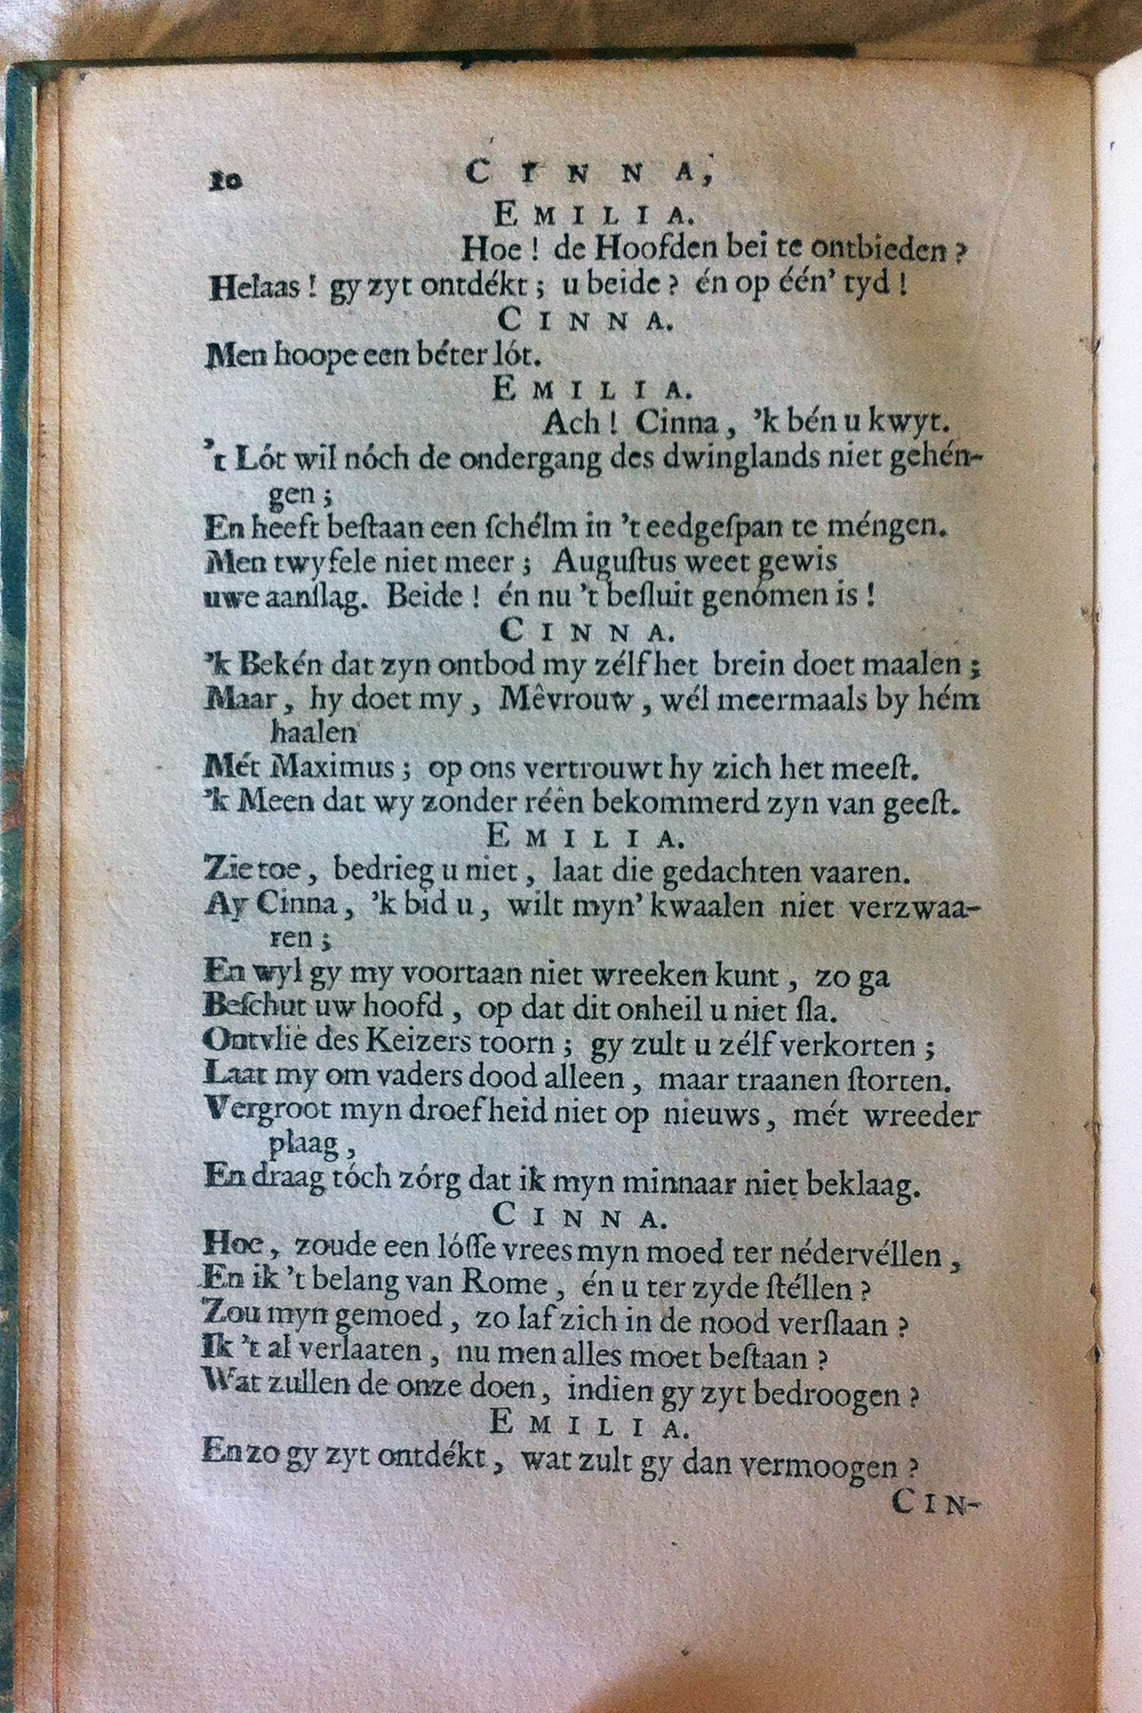 10 CINNA,
EMILIA.
Hoe! de Hoofden bei te ontbieden?
Helaas! gy zyt ontdékt; u beide? én op één' tyd!
CINNA.
Men hoope een béter lót.
EMILIA.
Ach! Cinna, 'k bén u kwyt.
't Lót wil nóch de ondergang des dwinglands niet gehén-
gen;
En heeft beſtaan een ſchélm in 't eedgeſpan te méngen.
Men twyfele niet meer; Auguſtus weet gewis
uwe aanſlag. Beide! én nu 't beſluit genómen is!
CINNA.
'k Bekén dat zyn ontbod my zélf het brein doet maalen;
Maar, hy doet my, Mêvrouw, wél meermaals by hém
haalen
Mét Maximus; op ons vertrouwt hy zich het meeſt.
'k Meen dat wy zonder réên bekommerd zyn van geeſt.
EMILIA.
Zie toe, bedrieg u niet, laat die gedachten vaaren.
Ay Cinna, 'k bid u, wilt myn' kwaalen niet verzwaa-
ren;
En wyl gy my voortaan niet wreeken kunt, zo ga
Beſchut uw hoofd, op dat dit onheil u niet ſla.
Ontvlie des Keizers toorn; gy zult u zélf verkorten;
Laat my om vaders dood alleen, maar traanen ſtorten.
Vergroot myn droefheid niet op nieuws, mét wreeder
plaag,
En draag tóch zórg dat ik myn minnaar niet beklaag.
CINNA.
Hoe, zoude een lóſſe vrees myn moed ter nédervéllen,
En ik 't belang van Rome, én u ter zyde ſtéllen?
Zou myn gemoed, zo laf zich in de nood verſlaan?
Ik 't al verlaaten, nu men alles moet beſtaan?
Wat zullen de onze doen, indien gy zyt bedroogen?
EMILIA.
En zo gy zyt ontdékt, wat zult gy dan vermoogen?
CIN-